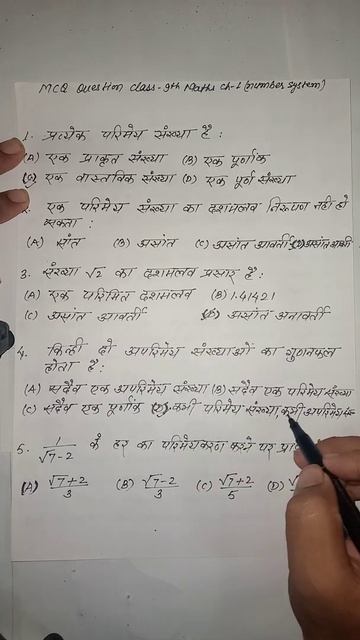 MCQ Question Class-9th Maths Ch-1 (number system)
1. प्रत्येक परिमेय संख्या है :
(A) एक प्राकृत संख्या (B) एक पूर्णांक
(C) एक वास्तविक संख्या (D) एक पूर्ण संख्या
2. एक परिमेय संख्या का दशमलव निरूपण नहीं हो
सकता :
(A) सांत (B) असांत (C) असांत आवर्ती (D)
3. संख्या √2 का दशमलव प्रसार है :
(A) एक परिमित दशमलव (B) 1.41421
(C) असांत आवर्ती (D) असांत अनावर्ती
4. किन्हीं दो अपरिमेय संख्याओं का गुणनफल
होता है :
(A) सदैव एक अपरिमेय संख्या (B) सदैव एक परिमेय संख्या
(C) सदैव एक पूर्णांक (D) कभी परिमेय संख्या, कभी अपरिमेय
5. 1/√7-2 के हर का परिमेयकरण करने पर
(A) √7+2/3 (B) √7-2/3 (C) √7+2/5 (D)